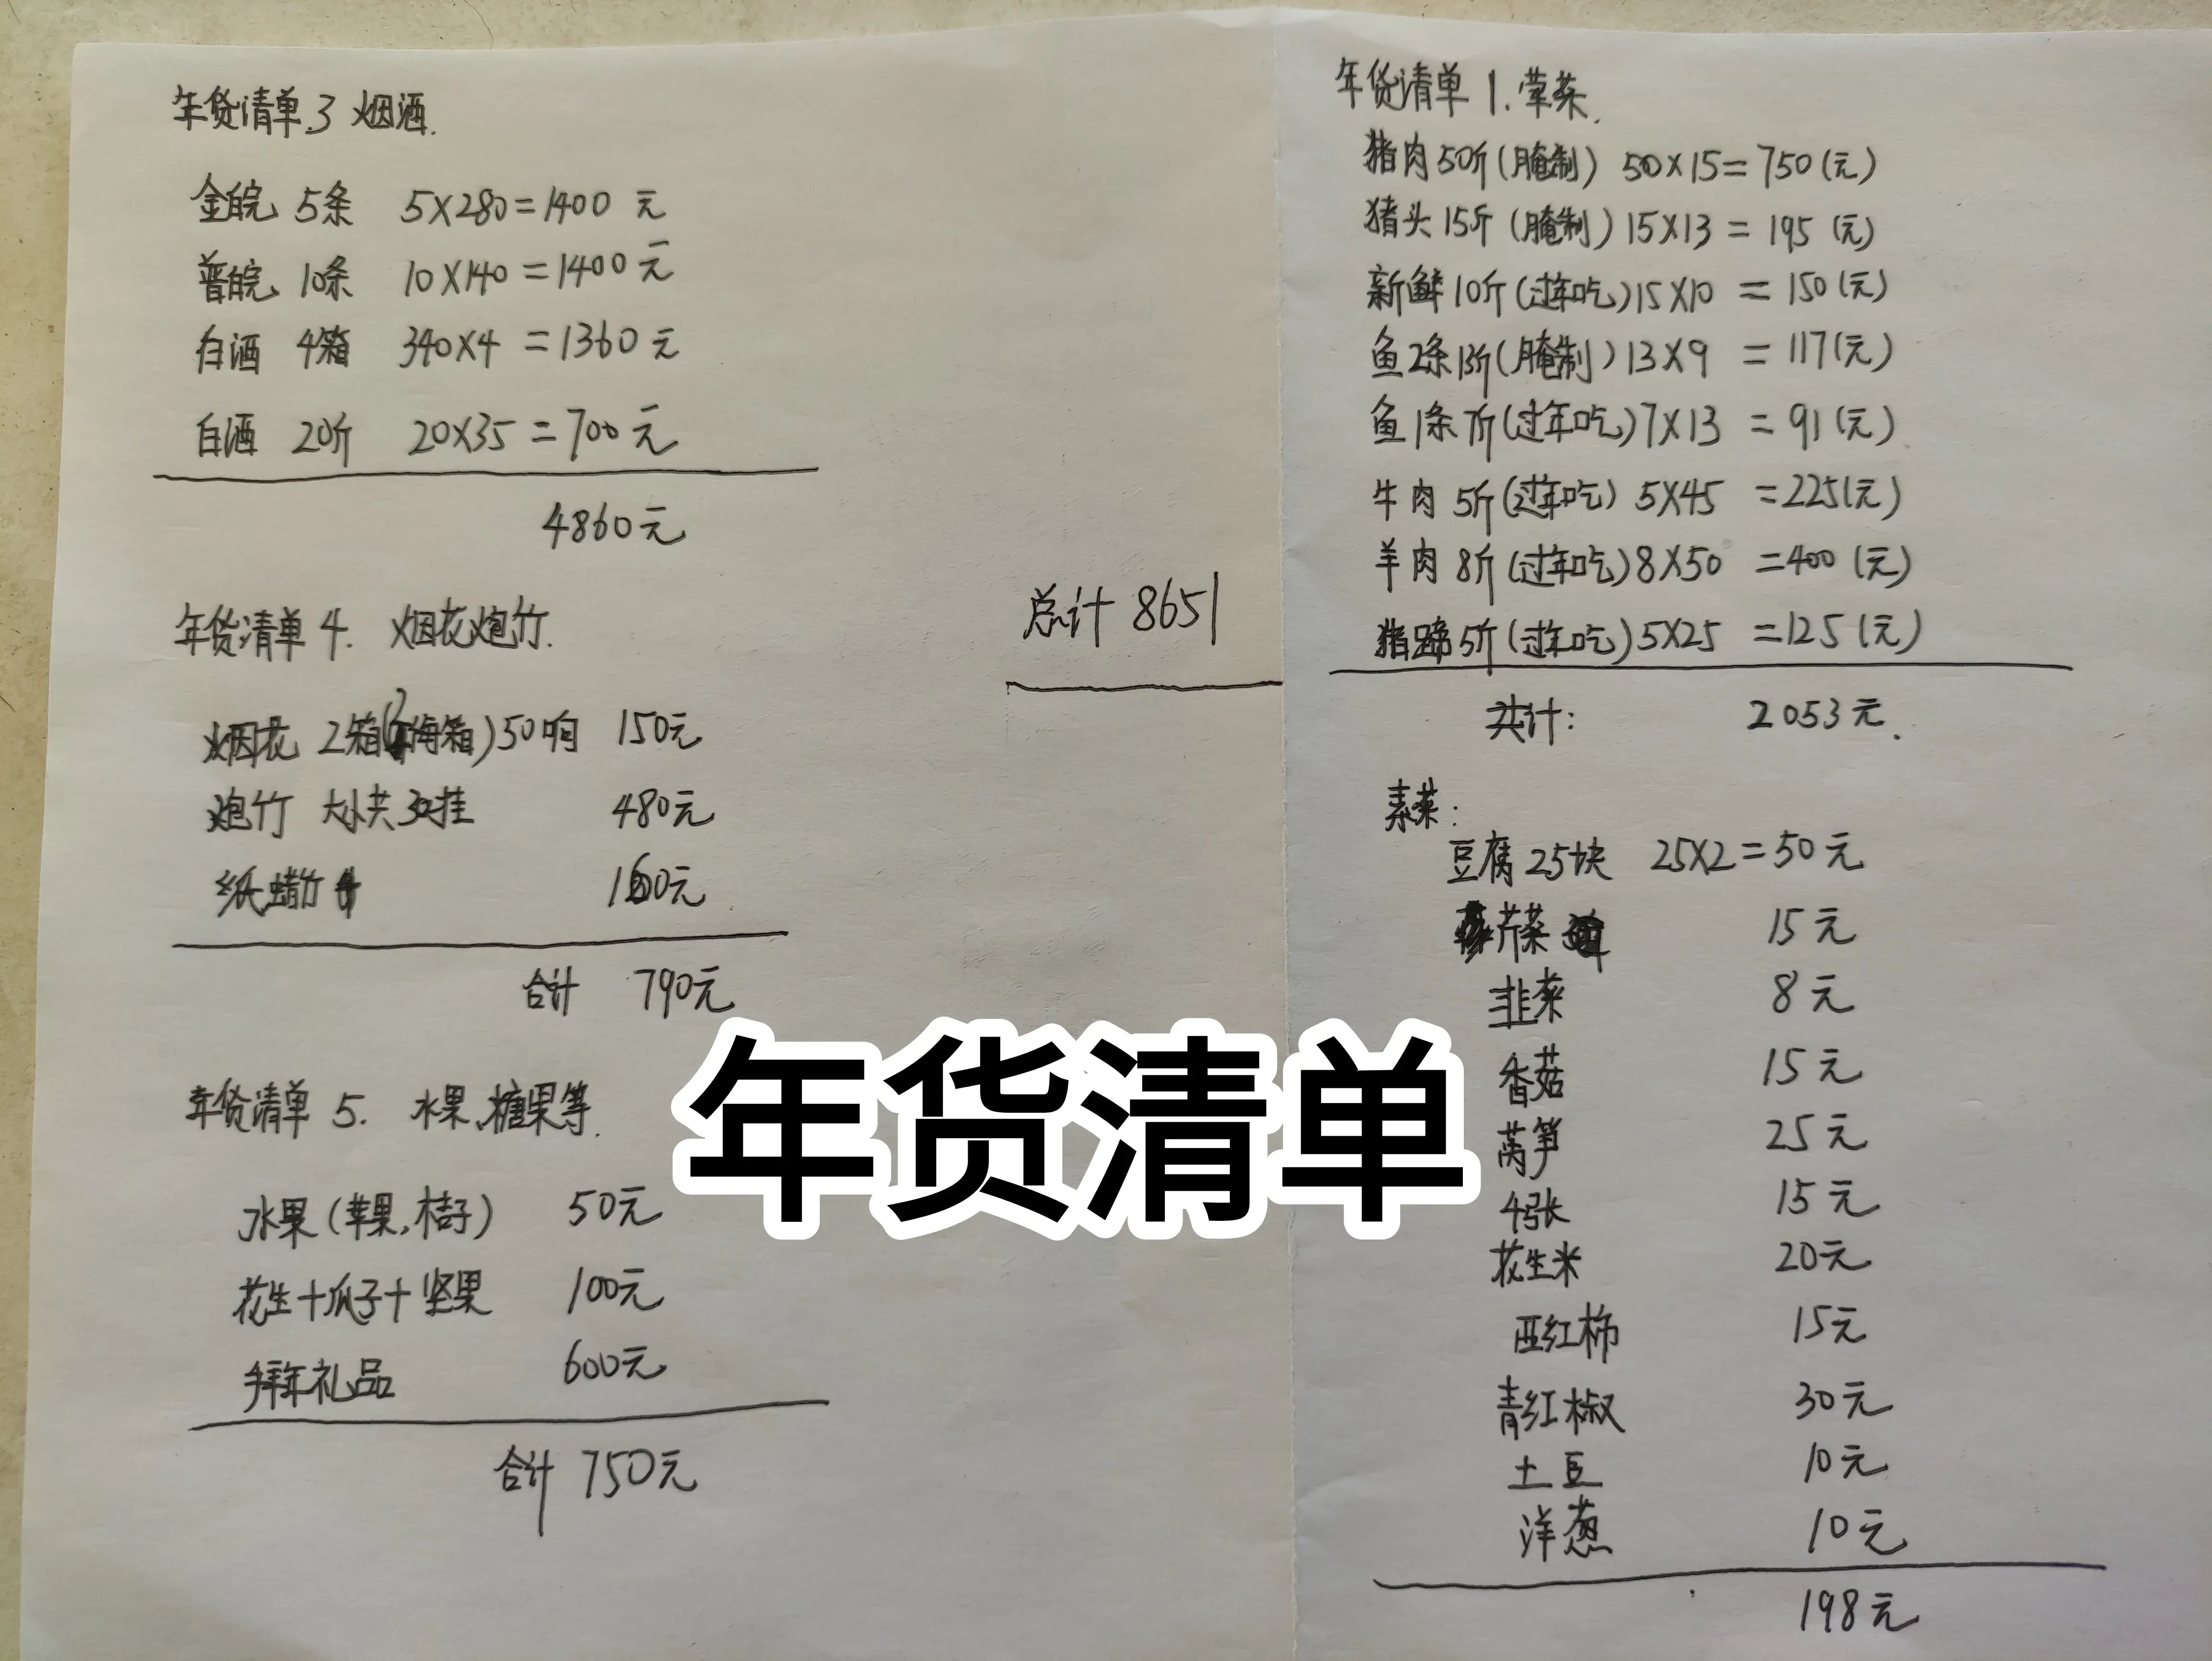 年货清单.3 烟酒.
金皖 5条 5×280=1400 元
普皖 10条 10×140=1400元
白酒 4箱 340×4=1360元
白酒 20斤 20×35=700元
4860元
年货清单 4. 烟花炮竹.
烟花 2箱 50响 150元
炮竹 大小共 挂 480元
纸蜡竹 160元
合计 790元
年货清单 5. 水果、糖果等.
水果(苹果,桔子) 50元
花生+瓜子+坚果 100元
拜年礼品 600元
合计 750元
总计 8651
年货清单 1. 荤菜.
猪肉50斤(腌制) 50×15=750(元)
猪头15斤(腌制)15×13=195(元)
新鲜10斤(过年吃)15×10=150(元)
鱼2条13斤(腌制)13×9=117(元)
鱼1条7斤(过年吃)7×13=91(元)
牛肉5斤(过年吃)5×45=225(元)
羊肉8斤(过年吃)8×50=400(元)
猪蹄5斤(过年吃)5×25=125(元)
共计: 2053元.
素菜:
豆腐25块 25×2=50元
芹菜 15元
韭菜 8元
香菇 15元
莴笋 25元
4张 15元
花生米 20元
西红柿 15元
青红椒 30元
土豆 10元
洋葱 10元
198元
年货清单